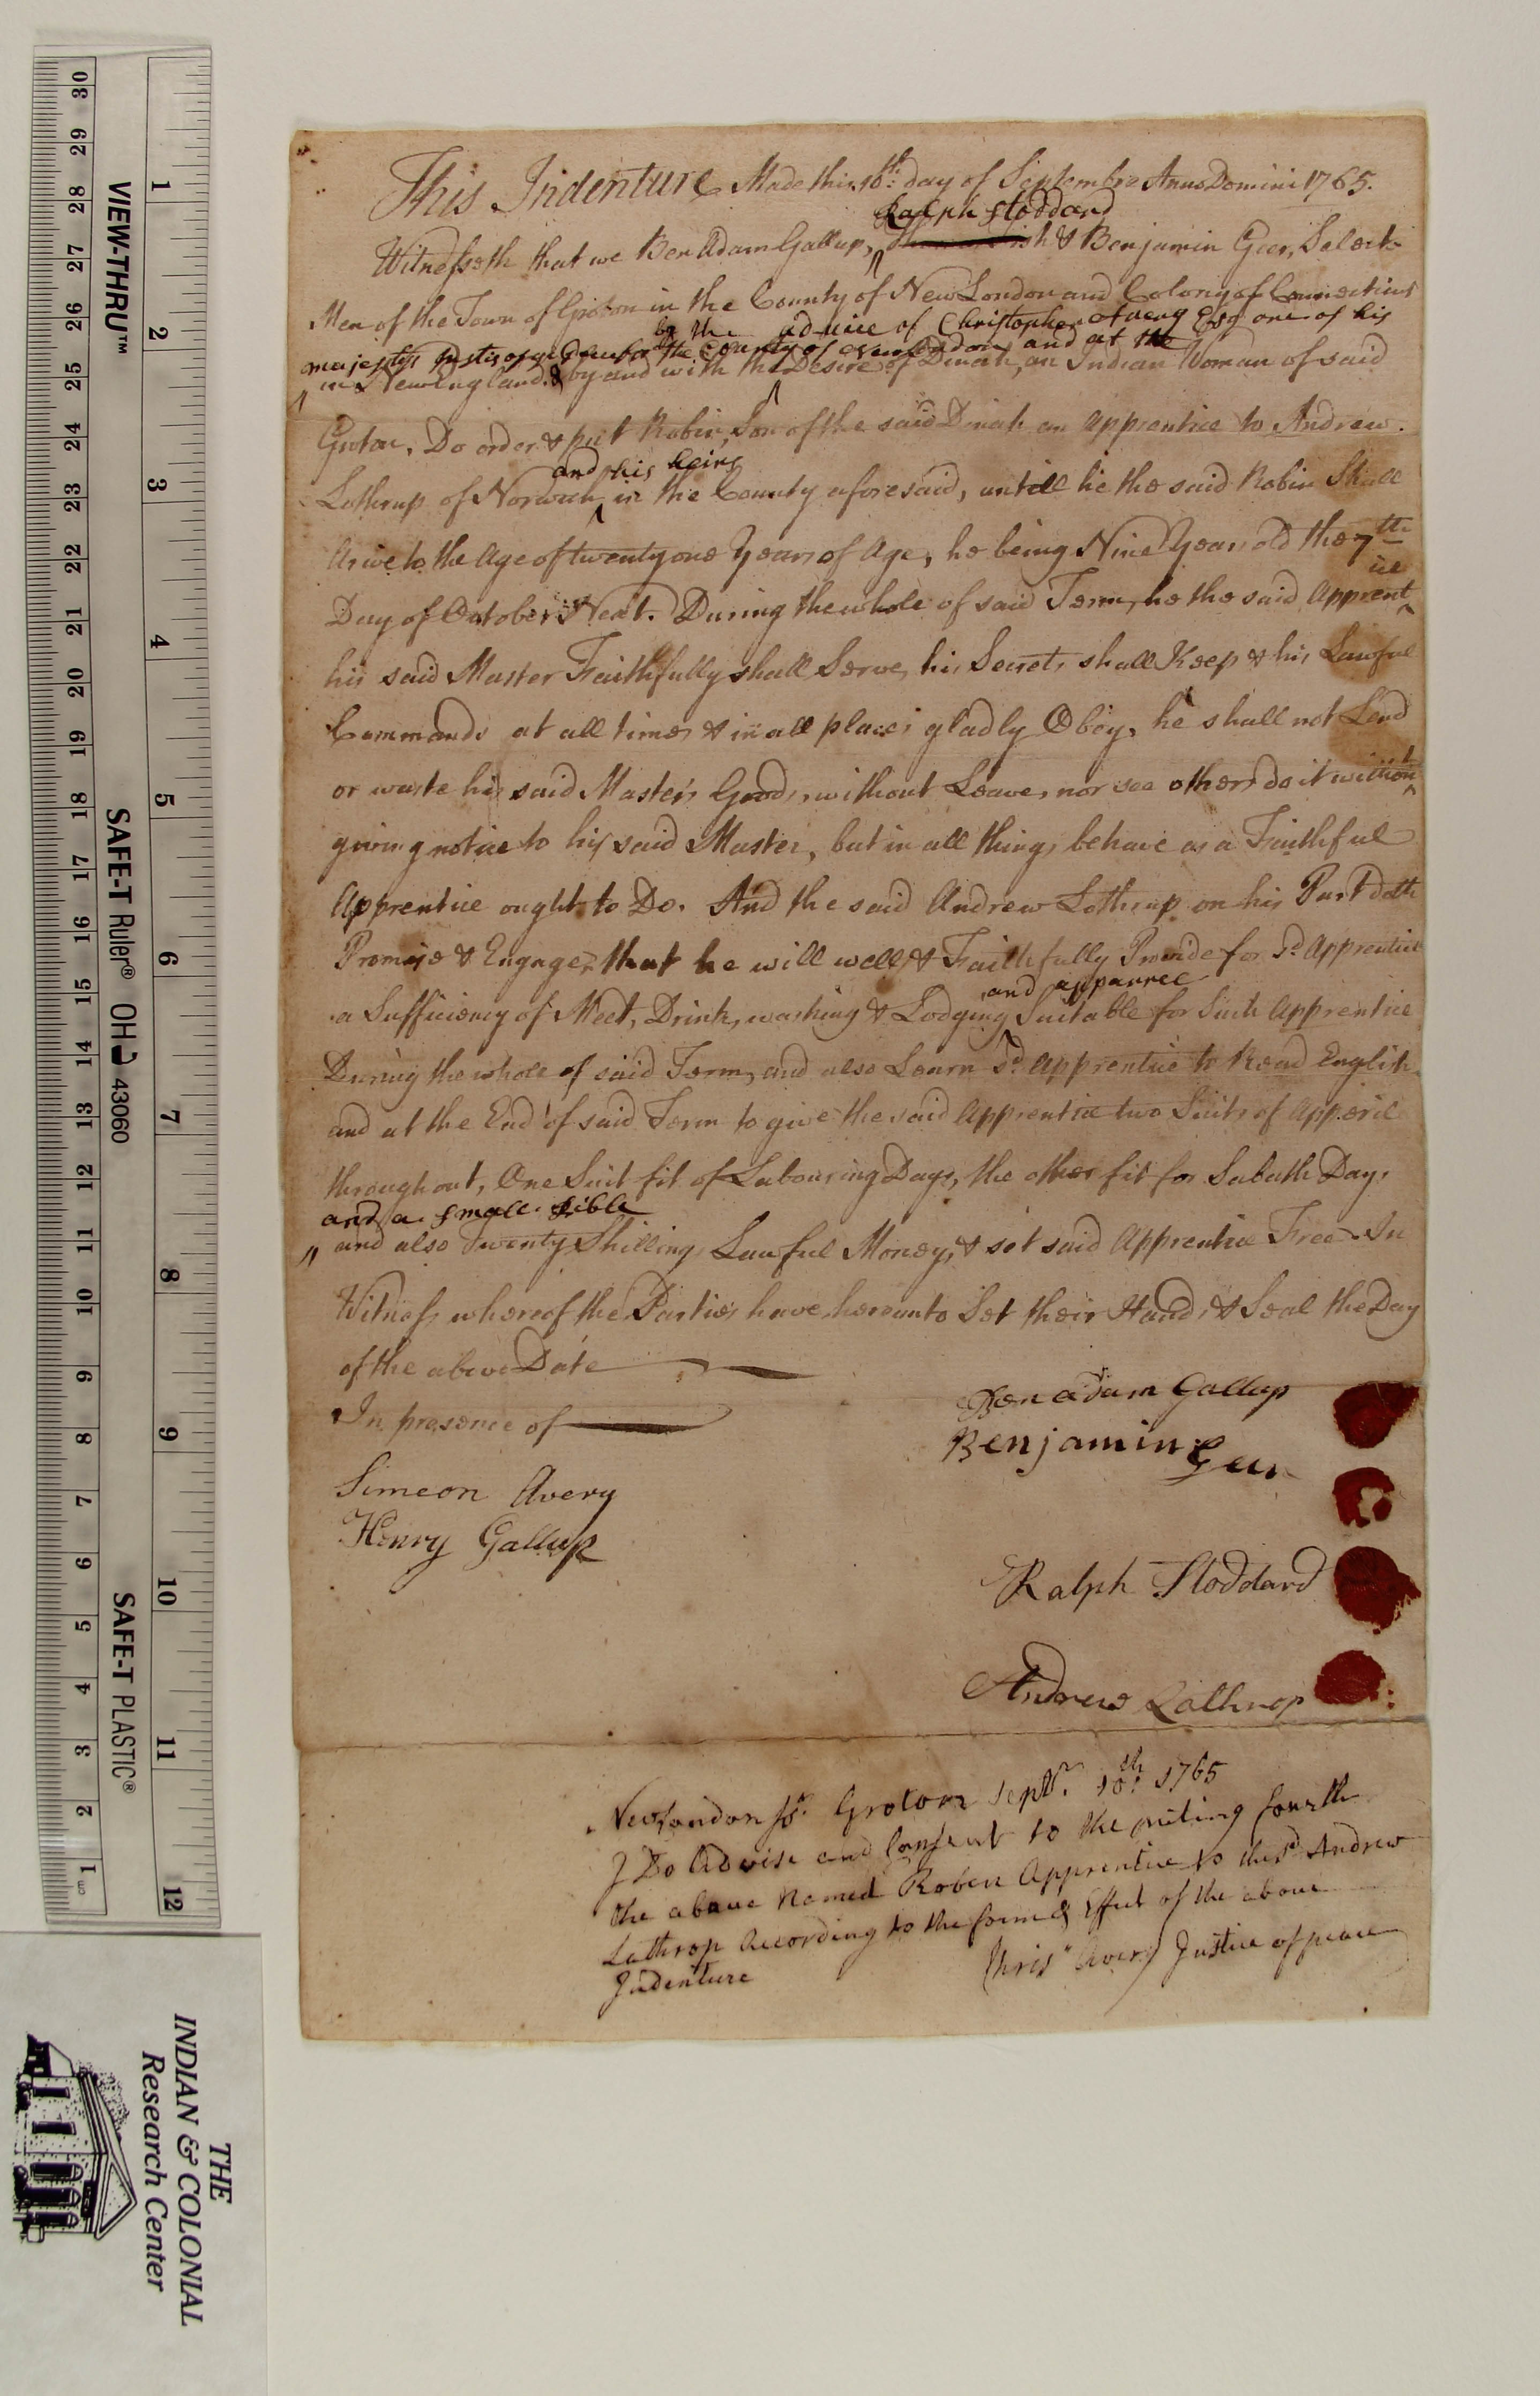 This Indenture Made this 10th: day of Septembre Anno Domini 1765.
Ralph Stoddard
Witnesseth that we Ben Adam Gallup, ish & Benjamin Geer, Select
Men of the Town of Groton in the County of New London and Colony of Connecticut
by the advice of Christopher Avery Esqr one of his
majestys Justis of peace for the County of New London and at the
in New England & by and with the Desire of Dinah, an Indian Woman of said
Groton, Do order & put Robin, Son of the said Dinah an Apprentice to Andrew
and his heirs
Lothrup of Norwich in the County aforesaid, untill he the said Robin Shall
Arive to the Age of twenty one Years of Age, he being Nine Years old the 7th
Day of October Next. During the whole of said Term, he the said Apprent
ice
his said Master Faithfully shall Serve, his Secrets shall Keep & his Lawful
Commands at all times & in all places gladly Obey, he shall not Lend
or waste his said Masters Goods, without Leave, nor see others do it without
giving notice to his said Master, but in all things behave as a Faithful
Apprentice ought to Do. And the said Andrew Lothrup on his Part doth
Promise & Engage, that he will well & Faithfully Provide for sd. Apprentice
and apparrel
a Sufficiency of Meet, Drink, washing & Lodging Suitable for Such Apprentice
During the whole of said Term, and also Learn sd. Apprentice to Read English
and at the End of said Term to give the said Apprentice two Suits of Apperil
throughout, One Suit fit of Labouring Days, the other fit for Sabath Days
and a small Bible
and also Twenty Shillings Lawful Money, & set said Apprentice Free. In
Witness whereof the Parties have hereunto Set their Hands & Seal the Day
of the above Date
In presence of
Simeon Avery
Henry Gallup
Ben adam Gallup
Benjamin Geer
Ralph Stoddard
Andrew Lathrop
New London ss. Groton Septr. 10th: 1765
I Do Advise and Consent to the puting fourth
the above Named Roben Apprentice to the sd Andrew
Lathrop According to the form & Effect of the above
Indenture
Chrisr Avery Justice of peace
VIEW-THRU™
SAFE-T Ruler® OHD 43060
SAFE-T PLASTIC®
30 29 28 27 26 25 24 23 22 21 20 19 18 17 16 15 14 13 12 11 10 9 8 7 6 5 4 3 2 1
1 2 3 4 5 6 7 8 9 10 11 12
THE
INDIAN & COLONIAL
Research Center